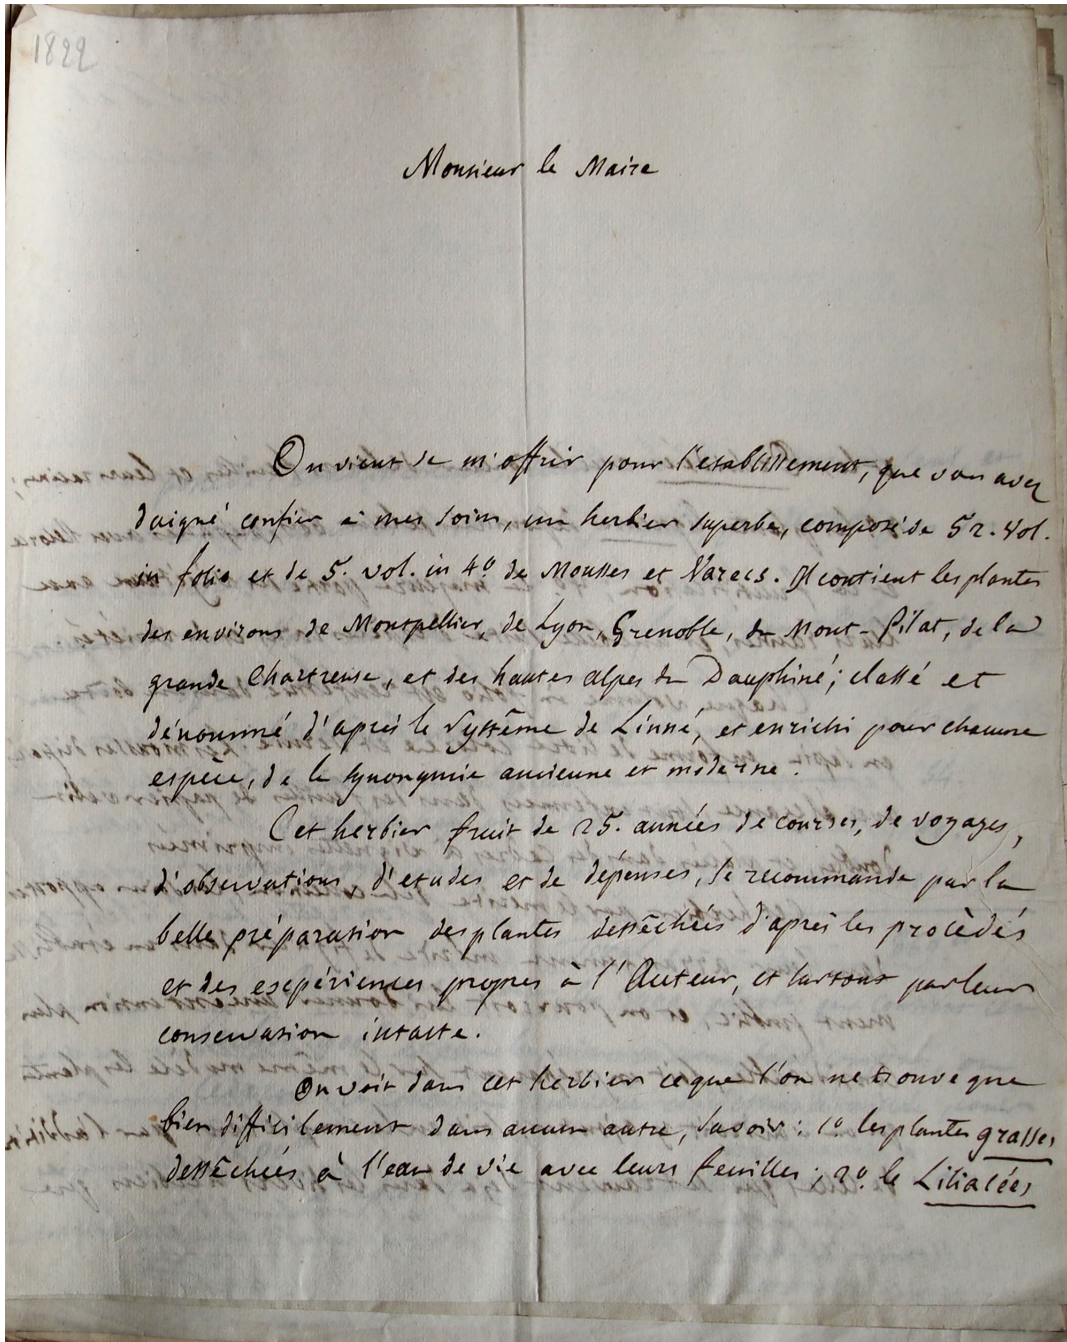 1822
Monsieur le Maire
On vient de m'offrir pour l'etablissement, que vous avez
daigné confier à mes soins, un herbier superbe, composé de 52. vol.
in folio et de 5. vol. in 4° de Mousses et Varecs. Il contient les plantes
des environs de Montpellier, de Lyon, Grenoble, du Mont-Pilat, de la
grande Chartreuse, et des hautes alpes du Dauphiné; classé et
dénommé d'après le Système de Linné, et enrichi pour chacune
espèce, de la synonymie ancienne et moderne.
Cet herbier fruit de 25. années de courses, de voyages,
d'observations, d'etudes et de dépenses, se recommande par la
belle préparation des plantes dessêchées d'après les procèdés
et des expériences propres à l'Auteur, et surtout par leur
conservation intacte.
On voit dans cet herbier ce que l'on ne trouve que
bien difficilement dans aucun autre, savoir: 1° les plantes grasses
dessêchées à l'eau de vie avec leurs feuilles; 2° le Liliacées